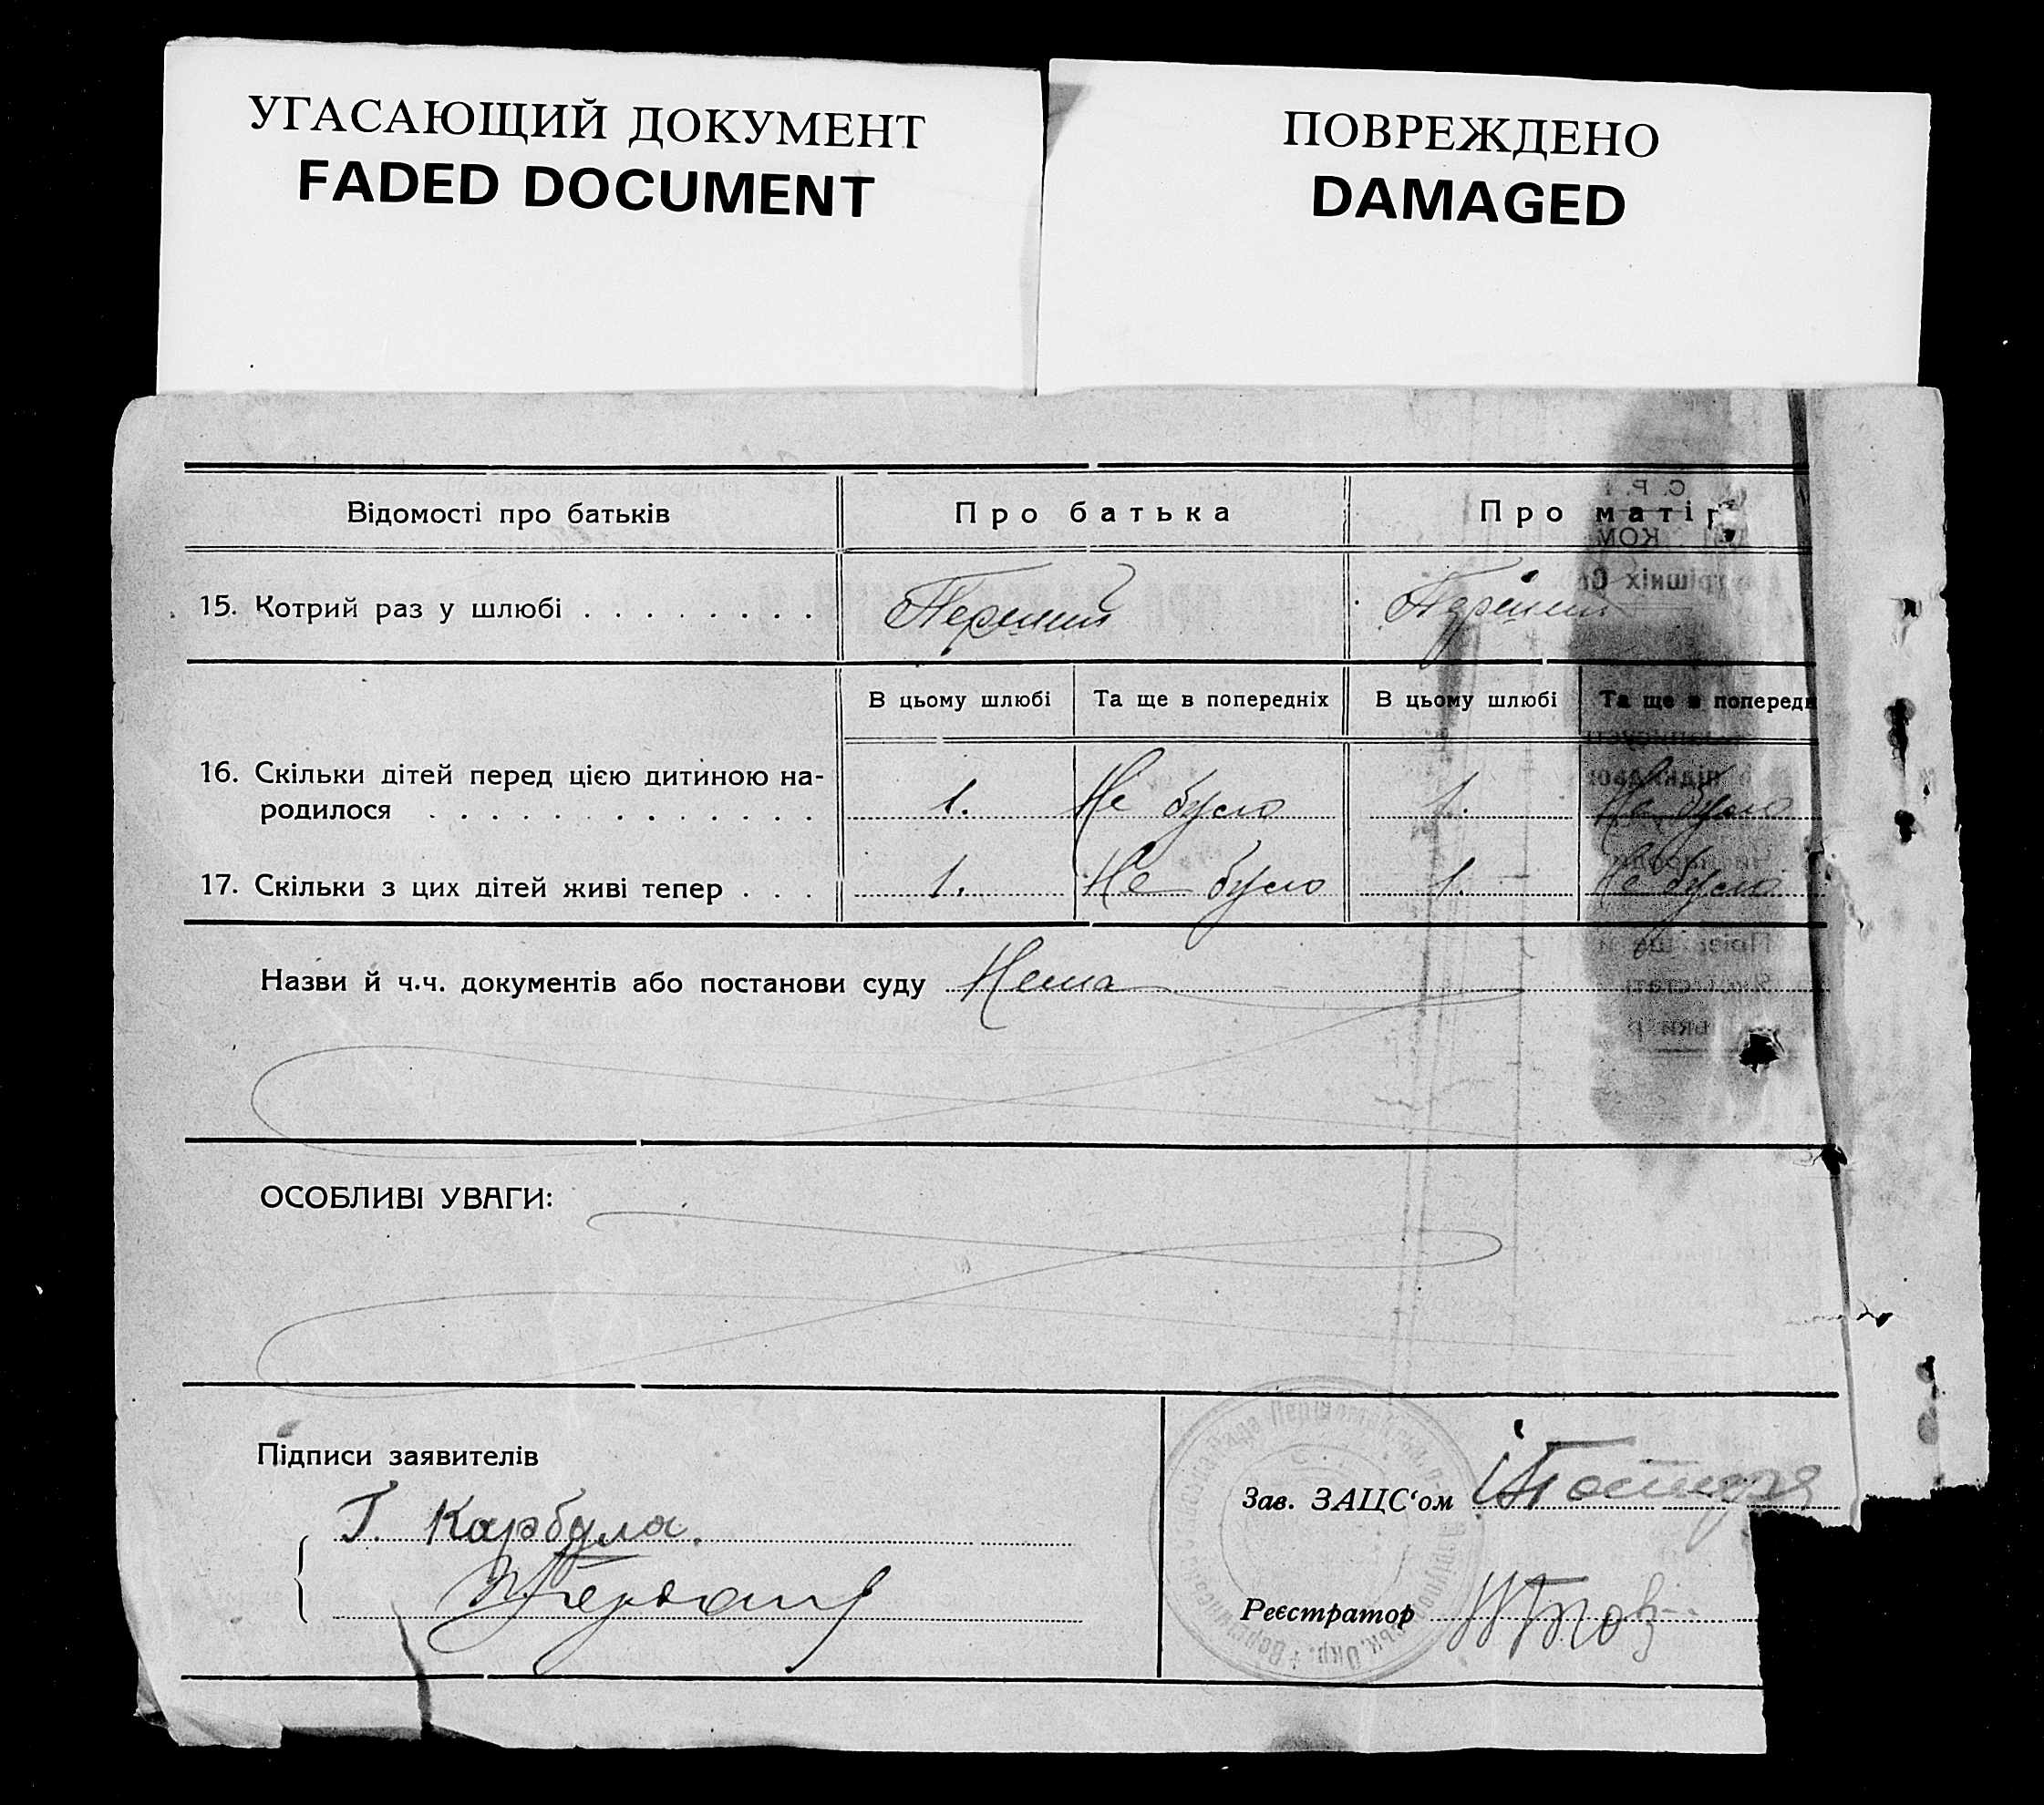 УГАСАЮЩИЙ ДОКУМЕНТ
FADED DOCUMENT
ПОВРЕЖДЕНО
DAMAGED
Відомості про батьків Про батька Про матір
15. Котрий раз у шлюбі . . . . . . . . Перший Перший
В цьому шлюбі Та ще в попередніх В цьому шлюбі Та ще в поперед
16. Скільки дітей перед цією дитиною на-
родилося . . . . . . . . . . . . . 1. Не було 1. Не було
17. Скільки з цих дітей живі тепер . . . 1. Не було 1. Не було
Назви й ч.ч. документів або постанови суду Нема
ОСОБЛИВІ УВАГИ:
Підписи заявителів
Г. Карбула.
Зав. ЗАЦС‘ом
Реєстратор